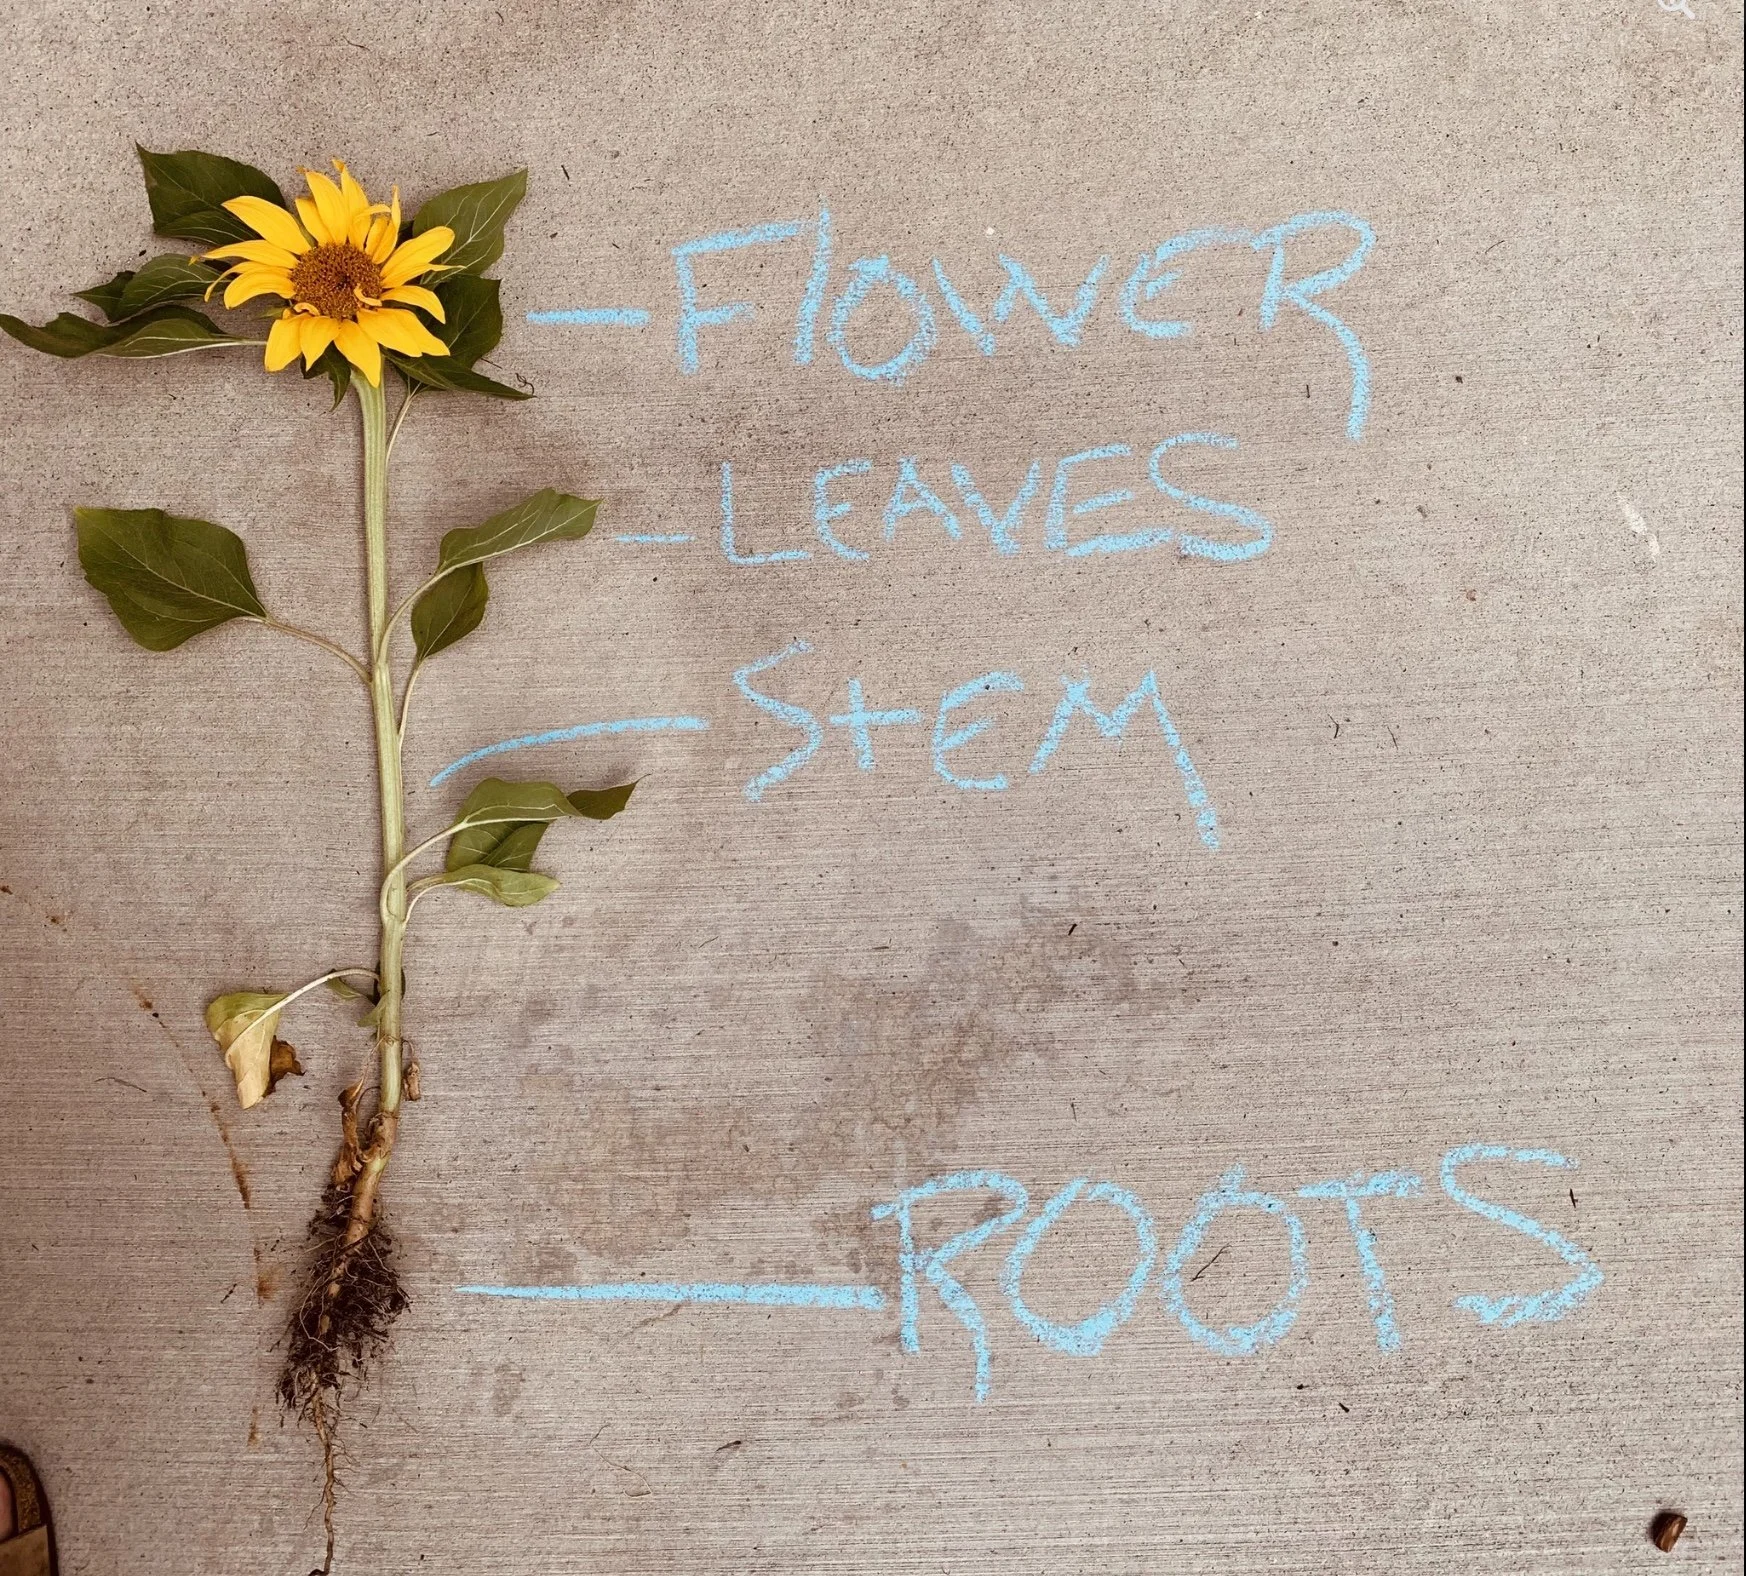 FlOWER
LEAVES
StEM
ROOTS